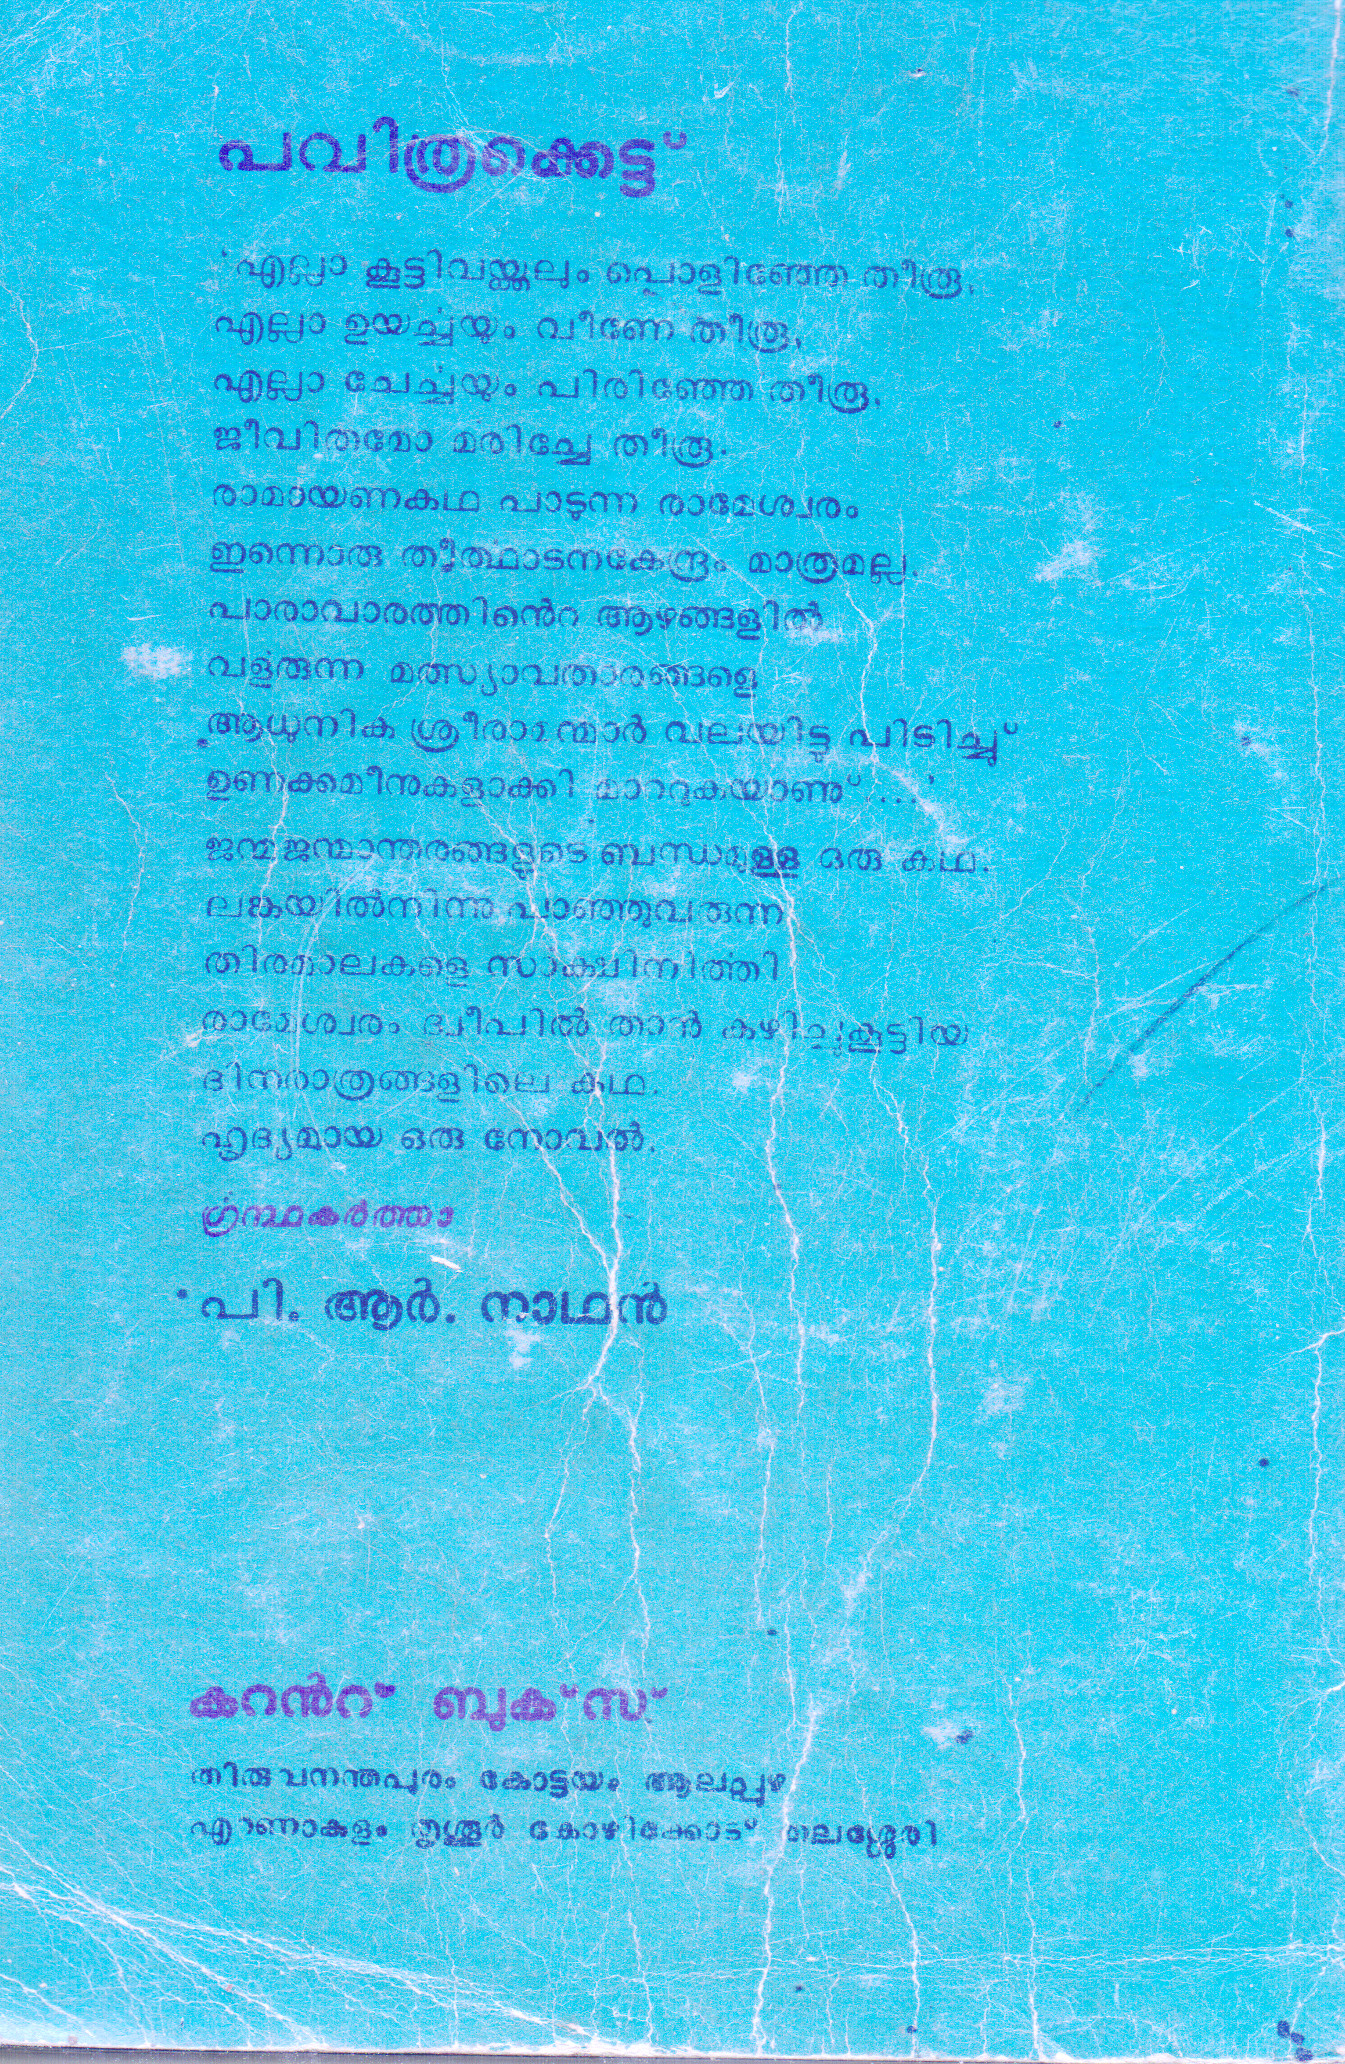 പവിത്രക്കെട്ട്
'എല്ലാ കൂട്ടിവയ്ക്കലും പൊളിഞ്ഞേ തീരൂ,
എല്ലാ ഉയൎച്ചയും വീണേ തീരൂ,
എല്ലാ ചേൎച്ചയും പിരിഞ്ഞേ തീരൂ,
ജീവിതമോ മരിച്ചേ തീരൂ.
രാമായണകഥ പാടുന്ന രാമേശ്വരം
ഇന്നൊരു തീൎത്ഥാടനകേന്ദ്രം മാത്രമല്ല.
പാരാവാരത്തിൻെറ ആഴങ്ങളിൽ
വളരുന്ന മത്സ്യാവതാരങ്ങളെ
ആധുനിക ശ്രീരാമന്മാർ വലയിട്ടു പിടിച്ചു്
ഉണക്കമീനുകളാക്കി മാററുകയാണു്....'
ജന്മജന്മാന്തരങ്ങളുടെ ബന്ധമുള്ള ഒരു കഥ.
ലങ്കയിൽനിന്നു പാഞ്ഞുവരുന്ന
തിരമാലകളെ സാക്ഷിനിൎത്തി
രാമേശ്വരം ദ്വീപിൽ താൻ കഴിച്ചുകൂട്ടിയ
ദിനരാത്രങ്ങളിലെ കഥ.
ഹൃദ്യമായ ഒരു നോവൽ.
ഗ്രന്ഥകർത്താ
പി. ആർ. നാഥൻ
കറൻറ് ബുക്സ്
തിരുവനന്തപുരം കോട്ടയം ആലപ്പുഴ
എറണാകുളം തൃശ്ശൂർ കോഴിക്കോട് തലശ്ശേരി